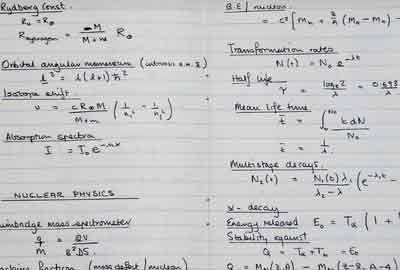 Rydberg Const.
R∞ = R∞
R hydrogen = M / (M + m) R∞
Orbital angular momentum
l² = l(l+1)ħ²
Isotope shift.
ν = cR∞M / (M+m) (1/n₁² - 1/n₂²)
Absorption spectra
I = I₀e^
NUCLEAR PHYSICS
Bainbridge mass spectrometer
q/m = 2V / B²DS
fraction (mass defect / nucleon)
B.E / nucleon
= c² [Mn + Z/A (MH - Mn) -
Transformation rates
N(t) = N₀ e^-λt
Half life
τ = loge2 / λ = 0.693
Mean life time
t̄ = ∫ t dN / N₀
t̄ = 1/λ
Multistage decays.
N₂(t) = N₁(0)λ₁ / (λ₂ - λ₁) (e^-λ₁t -
α - decay
Energy released E₀ = Tα (1 +
Stability against
Q = Tα + Tb = E₀
Q = (Z,A) - (Z-2, A-4)